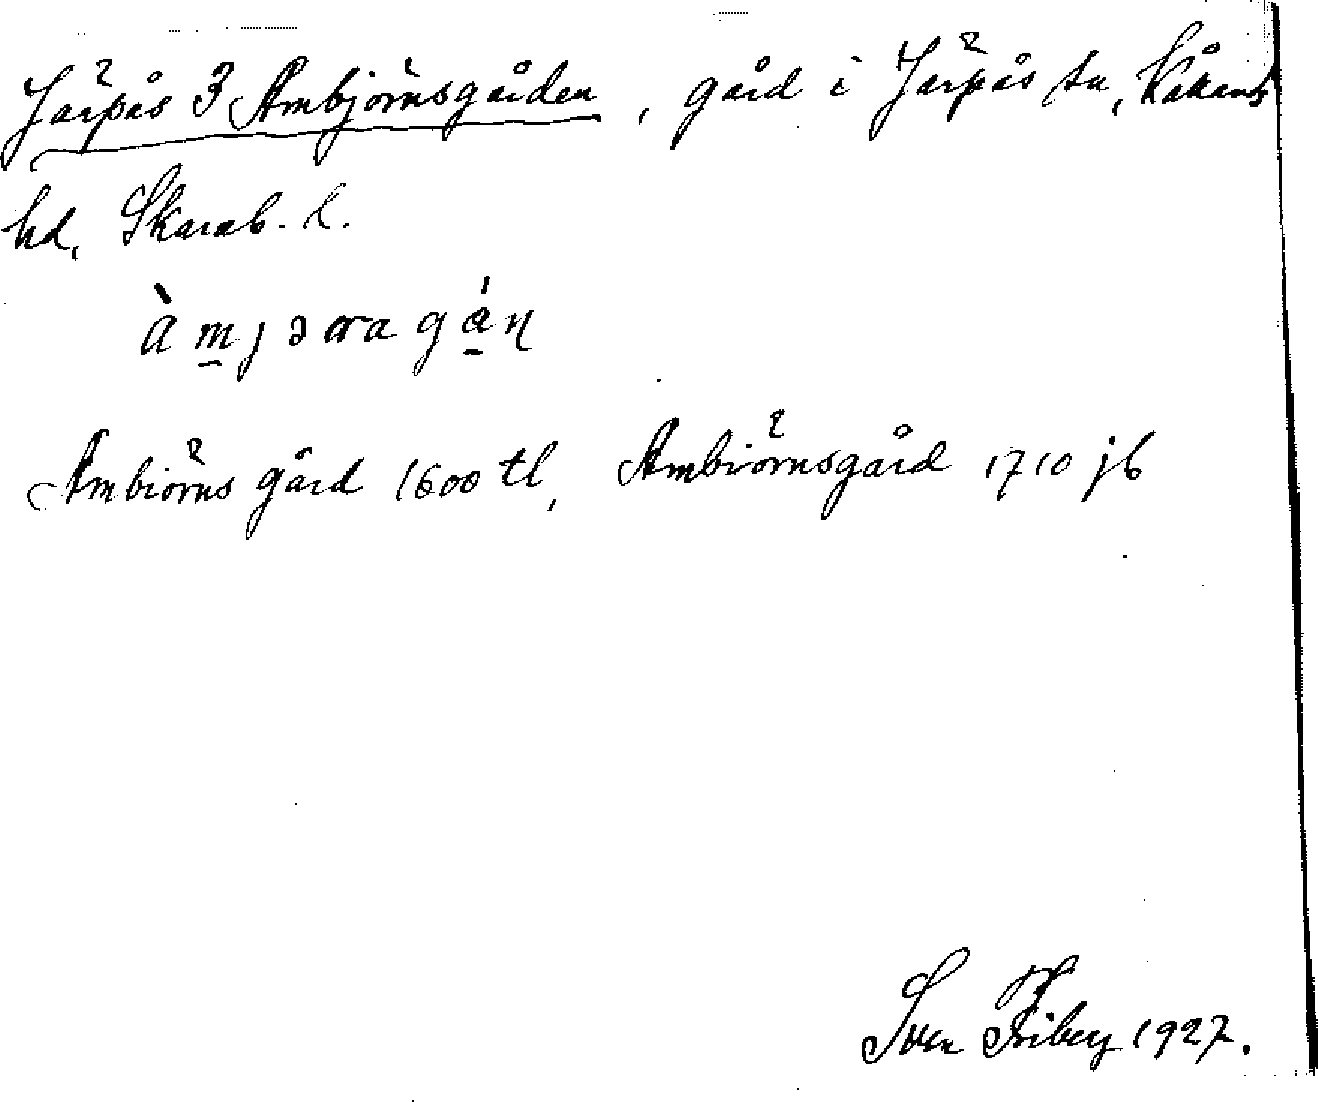 Järpås 3 Ambjörnsgården, gård i Järpås sn, Kåkinds
hd, Skarab. l.
Ambiörns gård 1600 tl, Ambiörnsgård 1710 jb
Sven Friberg 1927.